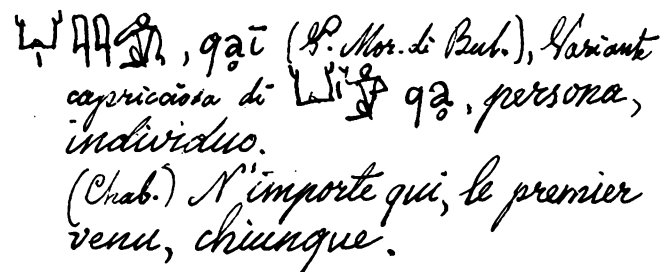 𓂓𓇋𓇋𓀁, qa̤ï (P. Mor. di Bul.), Variante
capricciosa di 𓂓𓏤𓀀 qa̤, persona,
individuo.
(Chab.) N'importe qui, le premier
venu, chiunque.